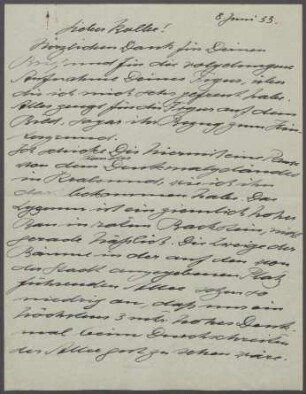 8 Juni 33.
Lieber Kolbe!
Herzlichen Dank für Deinen
Brief und für die wohlgelungene
Aufnahme Deiner Figur, über
die ich mich sehr gefreut habe.
Alles zeugt für die Figur auf dem
Bild, sogar ihr Bezug zum Hin-
tergrund.
Ich schicke Dir hiermit eine Plan
von dem Denkmalsgelände
in wie ich ihn
bekommen habe. Das
Lyzeum ist ein ziemlich hoher
Bau in rotem Backstein, nicht
gerade hässlich. Die Zweige der
Bäume in der auf den von
der Stadt angegebenen Platz
führenden Allee setzen so
niedrig an, dass nur ein
höchstens 3 mtr. hohes Denk-
mal beim Durchschreiten
der Allee gut zu sehen wäre.